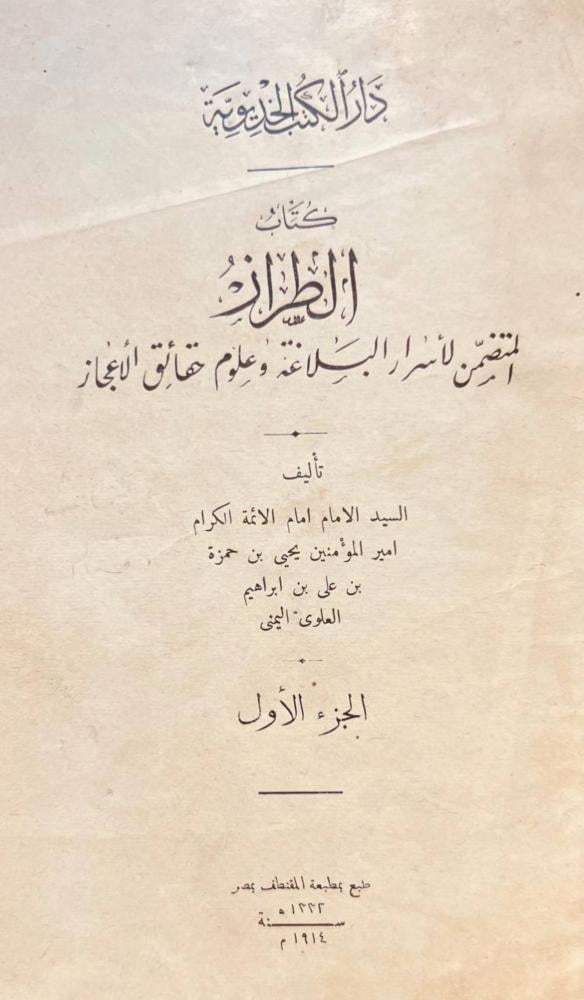 دَارُ الكُتُبِ الخِدِيوِيَّةِ
كتَابُ
الطِّرَازِ
المتضمِّن لأسرار البلاغة وعلوم حقائق الأعجاز
تأليف
السيد الامام امام الائمة الكرام
امير المؤمنين يحيى بن حمزة
بن على بن ابراهيم
العلوى اليمنى
الجزء الأول
طبع بمطبعة المقتطف بمصر
سنة
١٣٣٢ ه
١٩١٤ م